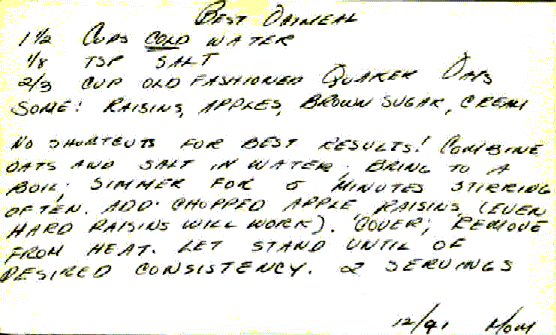 BEST OATMEAL
1 1/2 CUPS COLD WATER
1/8 TSP SALT
2/3 CUP OLD FASHIONED QUAKER OATS
SOME: RAISINS, APPLES, BROWN SUGAR, CREAM
NO SHORTCUTS FOR BEST RESULTS! COMBINE
OATS AND SALT IN WATER; BRING TO A
BOIL; SIMMER FOR 5 MINUTES STIRRING
OFTEN. ADD CHOPPED APPLE RAISINS (EVEN
HARD RAISINS WILL WORK). COVER; REMOVE
FROM HEAT. LET STAND UNTIL OF
DESIRED CONSISTENCY. 2 SERVINGS
12/91 MOM